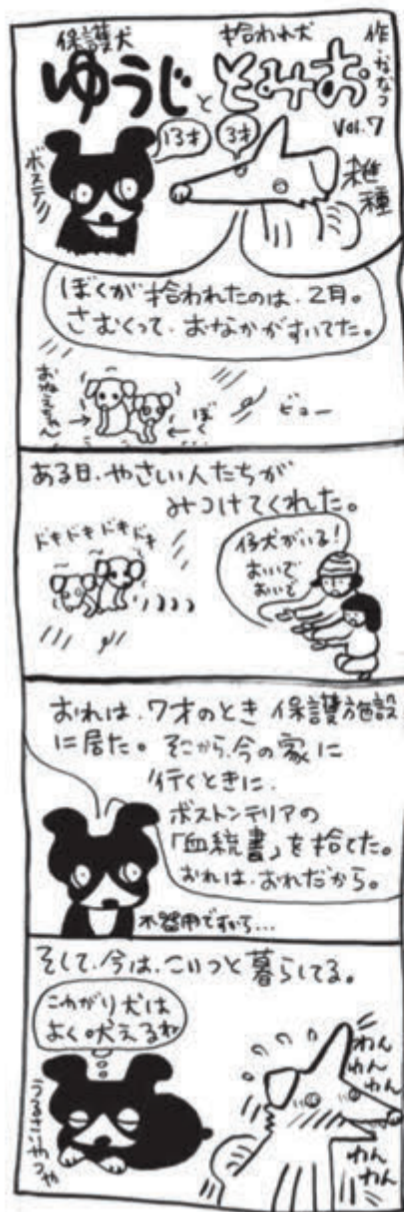 保護犬
ゆうじと
拾われ犬
とみお
作・ななつ
Vol.7
ボステリ
13才
3才
雑種
ぼくが拾われたのは、2月。
さむくって、おなかがすいてた。
おねえちゃん→
←ぼく
ビュー
ある日、やさしい人たちが
みつけてくれた。
ドキドキドキドキ
仔犬がいる!
おいで
おいで
おれは、7才のとき保護施設
に居た。そこから、今の家に
行くときに、
ボストンテリアの
「血統書」を捨てた。
おれは、おれだから。
不器用ですから…
そして、今は、こいつと暮らしてる。
こわがり犬は
よく吠えるね
うるさいやつや
わん
わん
わん
わん
わん